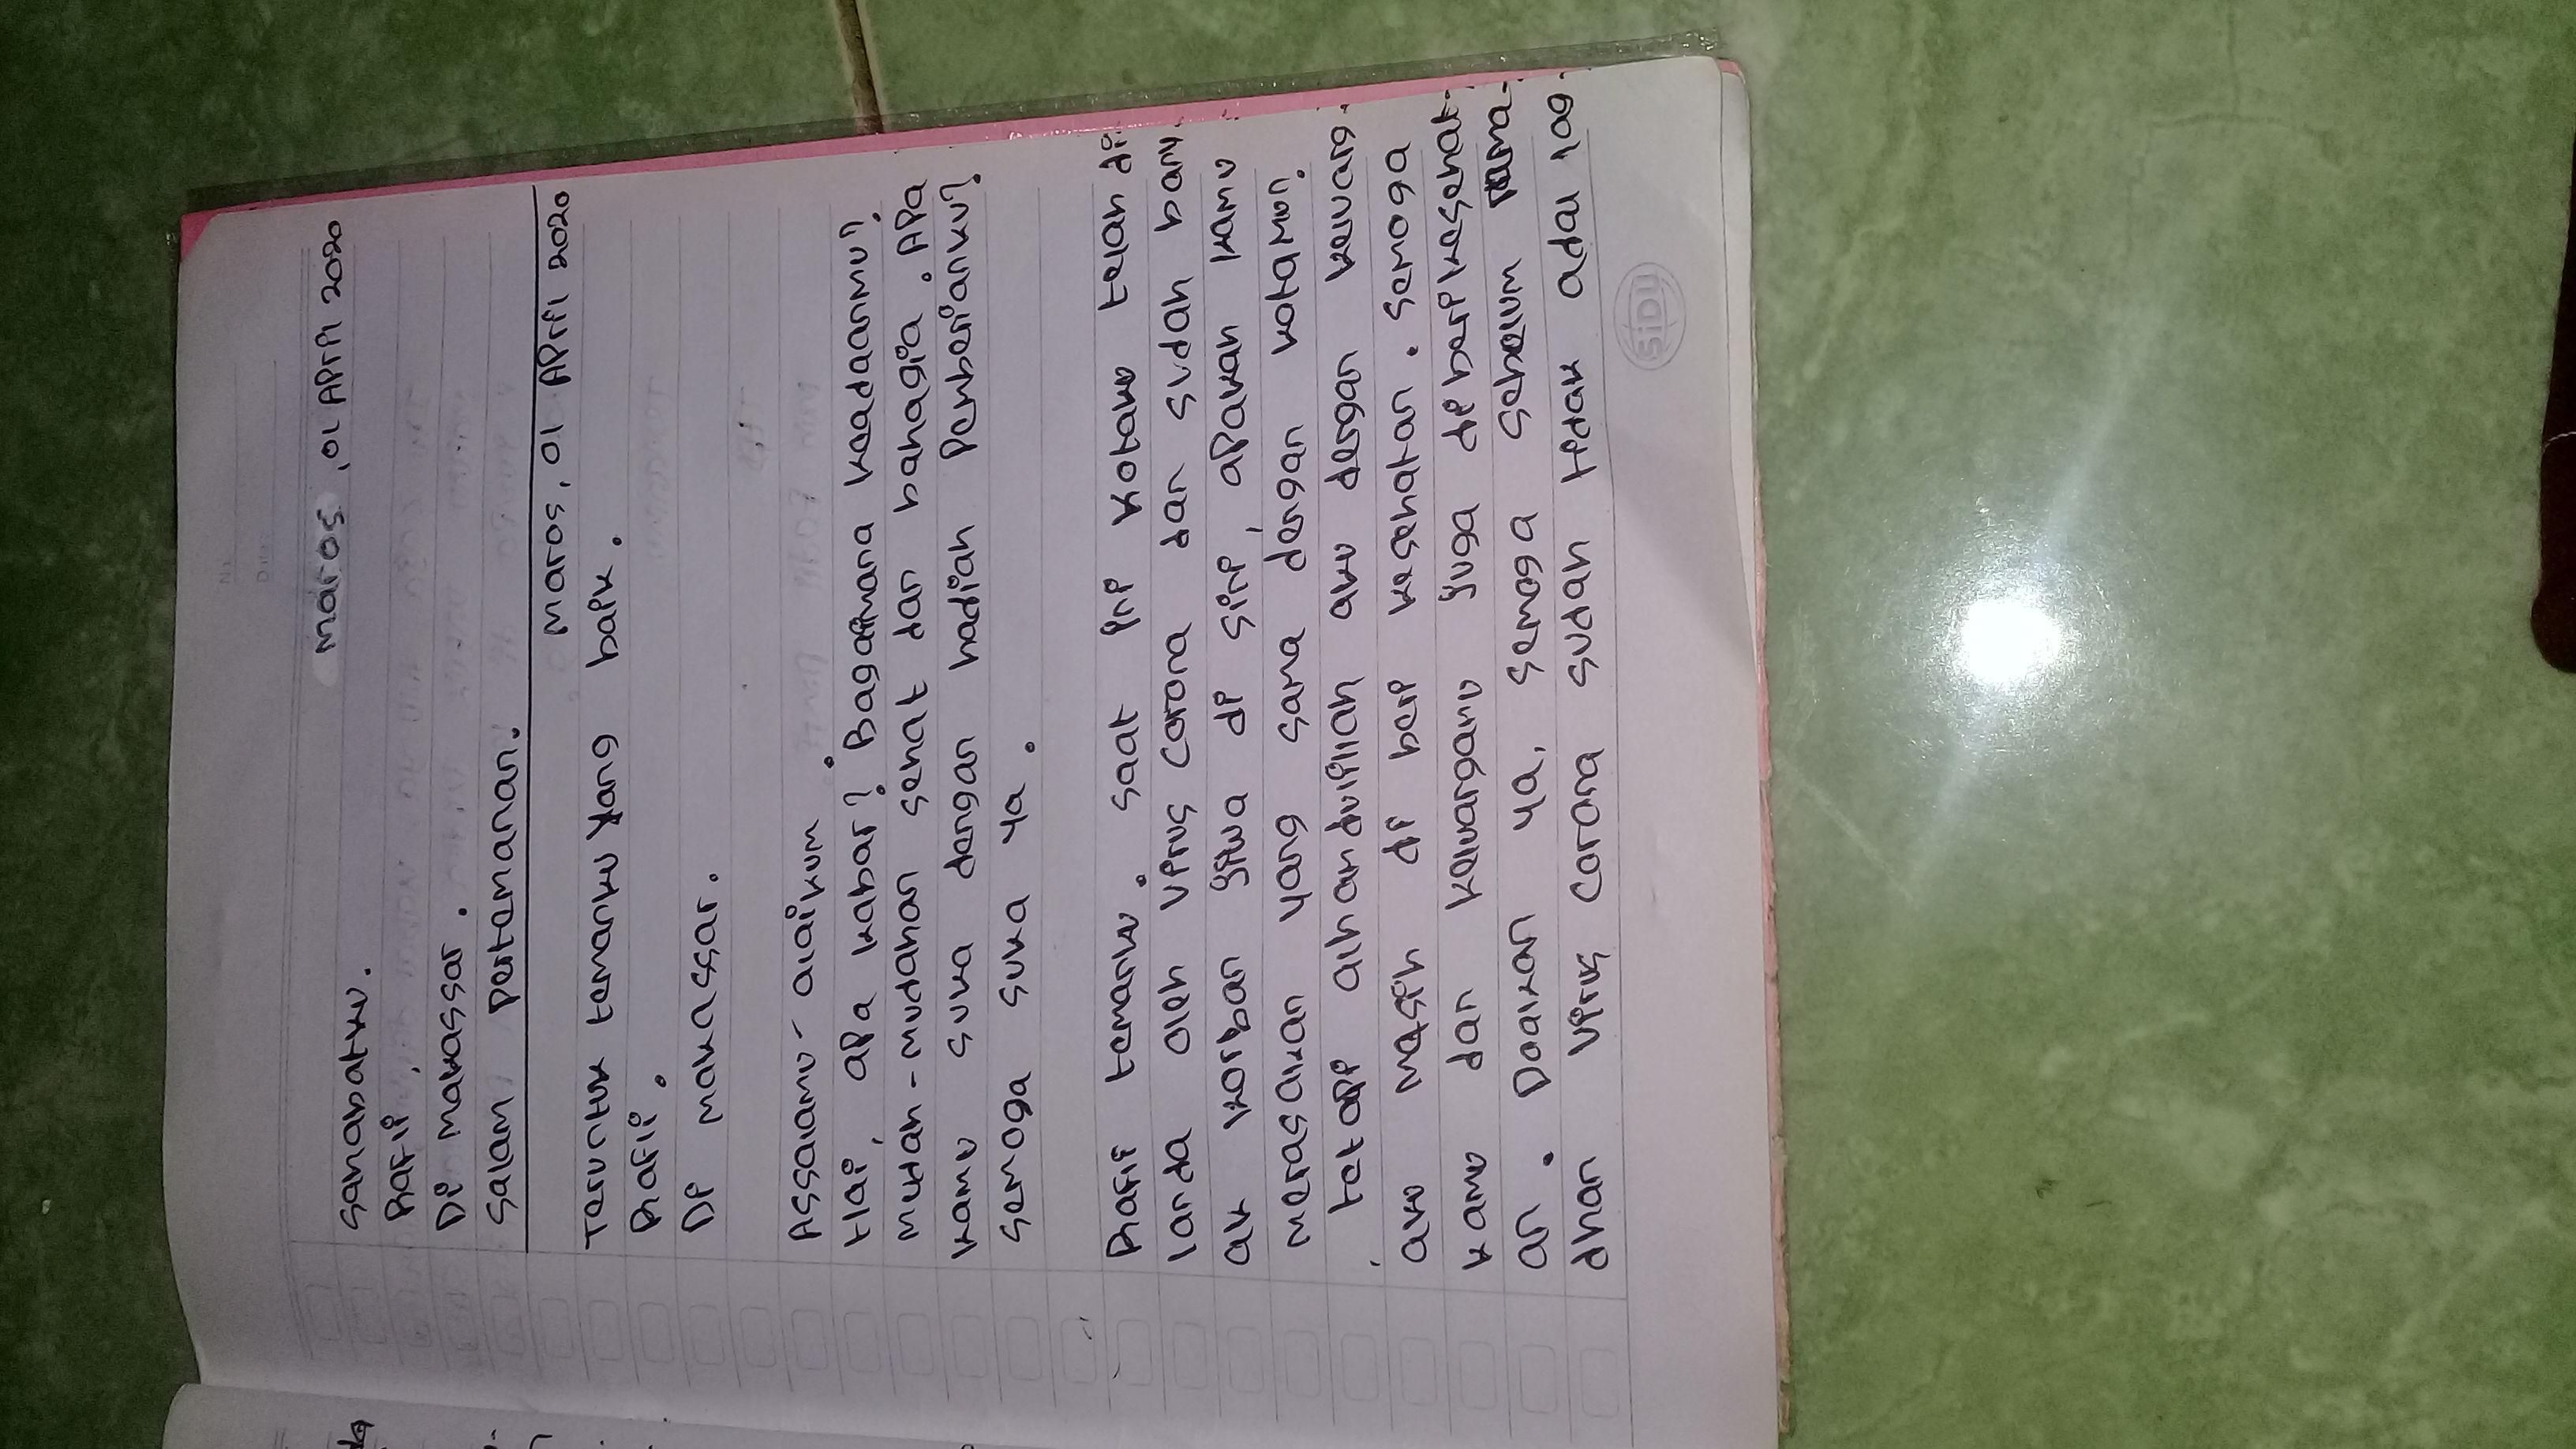 Maros, 01 April 2020
Sahabatku.
Rafii,
Di Makassar.
Salam pertemanan.
Maros, 01 April 2020
Teruntuk temanku yang baik.
Rafii.
Di Makassar.
Assalamu-alaikum.
Hai, apa kabar? Bagaimana keadaanmu?
mudah-mudahan sehat dan bahagia. Apa
kamu suka dengan hadiah pemberianku?
semoga suka ya.
Rafii temanku. saat ini kotaku telah di
landa oleh virus corona dan sudah bany
ak korban jiwa di sini, apakah kamu
merasakan yang sama dengan kotamu?
tetapi alhamdulillah aku dengan keluarg-
aku masih di beri kesehatan. semoga
kamu dan keluargamu juga di beri kesehat-
an. Doakan ya, semoga sebelum Rama-
dhan virus corona sudah tidak ada lag-
SiDU